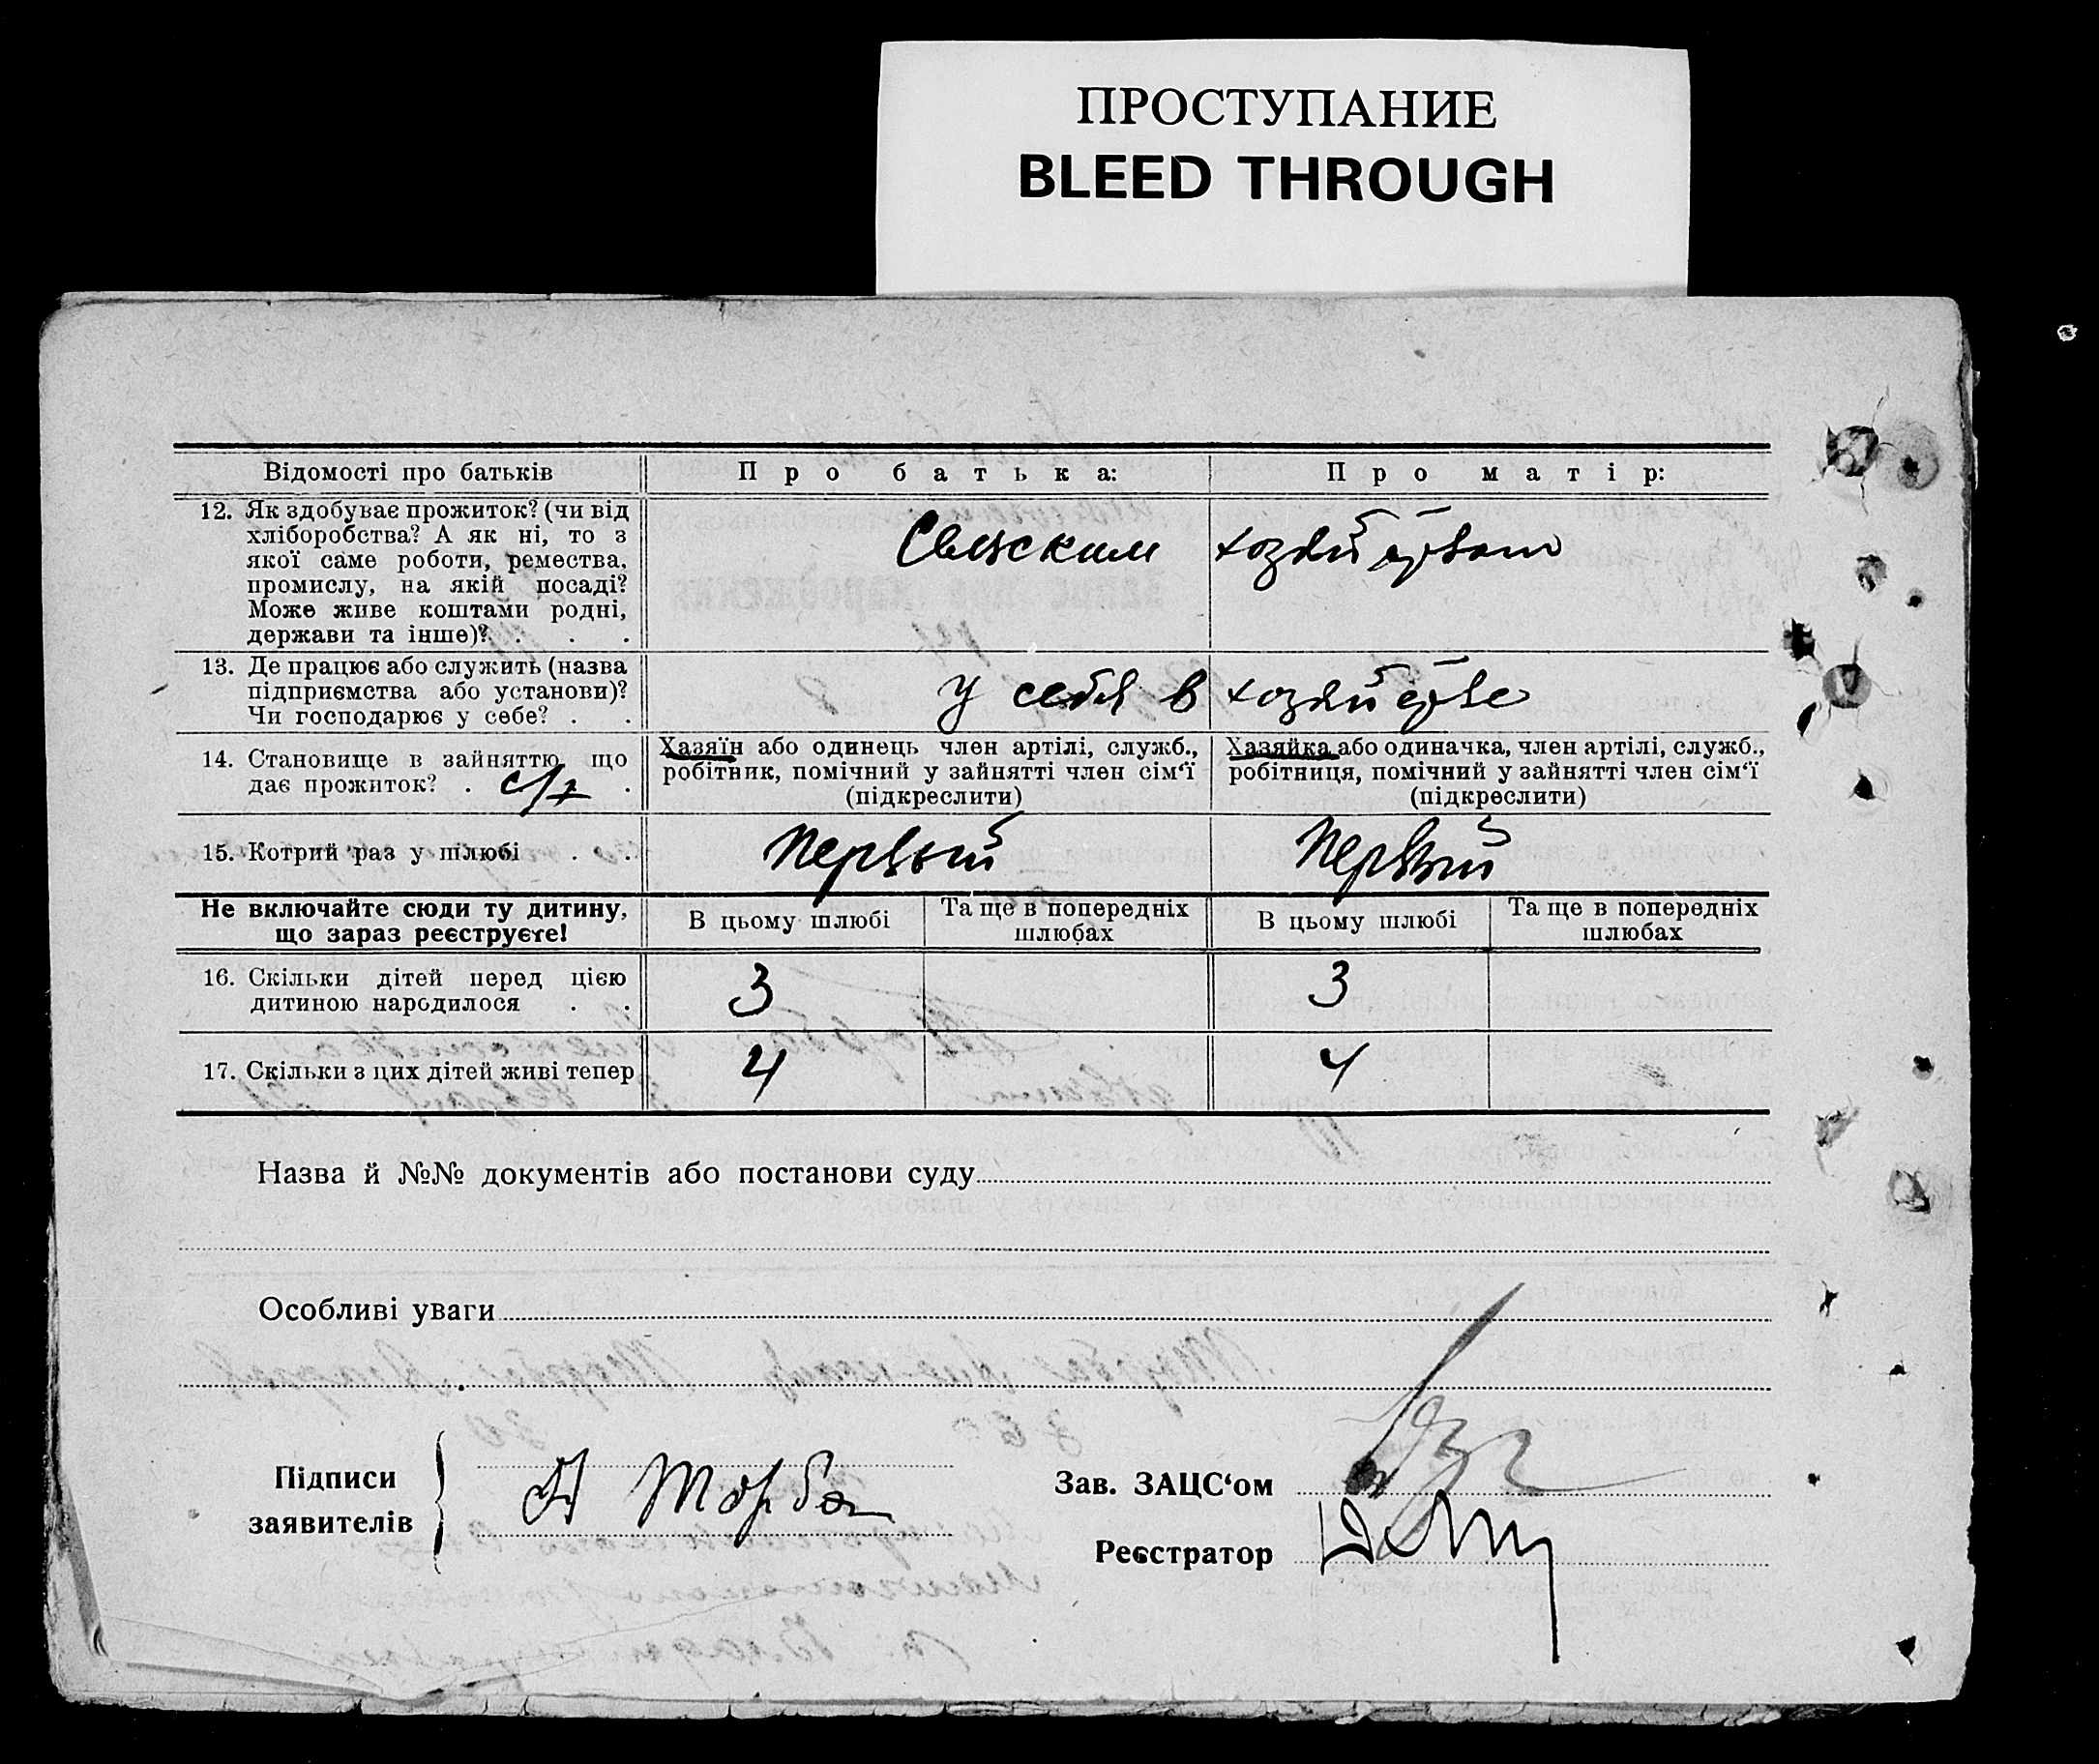 ПРОСТУПАНИЕ
BLEED THROUGH
Відомості про батьків
Про батька:
Про матір:
12. Як здобуває прожиток? (чи від
хліборобства? А як ні, то з
якої саме роботи, ремества,
промислу, на якій посаді?
Може живе коштами родні,
держави та інше)? . . .
Сельским хозяйством
13. Де працює або служить (назва
підприємства або установи)?
Чи господарює у себе? . .
У себя в хозяйстве
14. Становище в зайняттю що
дає прожиток? . с/х .
Хазяїн або одинець член артілі, служб.,
робітник, помічний у зайнятті член сім‘ї
(підкреслити)
Хазяйка або одиначка, член артілі, служб.,
робітниця, помічний у зайнятті член сім‘ї
(підкреслити)
15. Котрий раз у шлюбі . .
Первый
Первый
Не включайте сюди ту дитину,
що зараз реєструєте!
В цьому шлюбі
Та ще в попередніх
шлюбах
В цьому шлюбі
Та ще в попередніх
шлюбах
16. Скільки дітей перед цією
дитиною народилося . .
3
3
17. Скільки з цих дітей живі тепер
4
4
Назва й №№ документів або постанови суду
Особливі уваги
Підписи
заявителів
Торба
Зав. ЗАЦС‘ом
Реєстратор